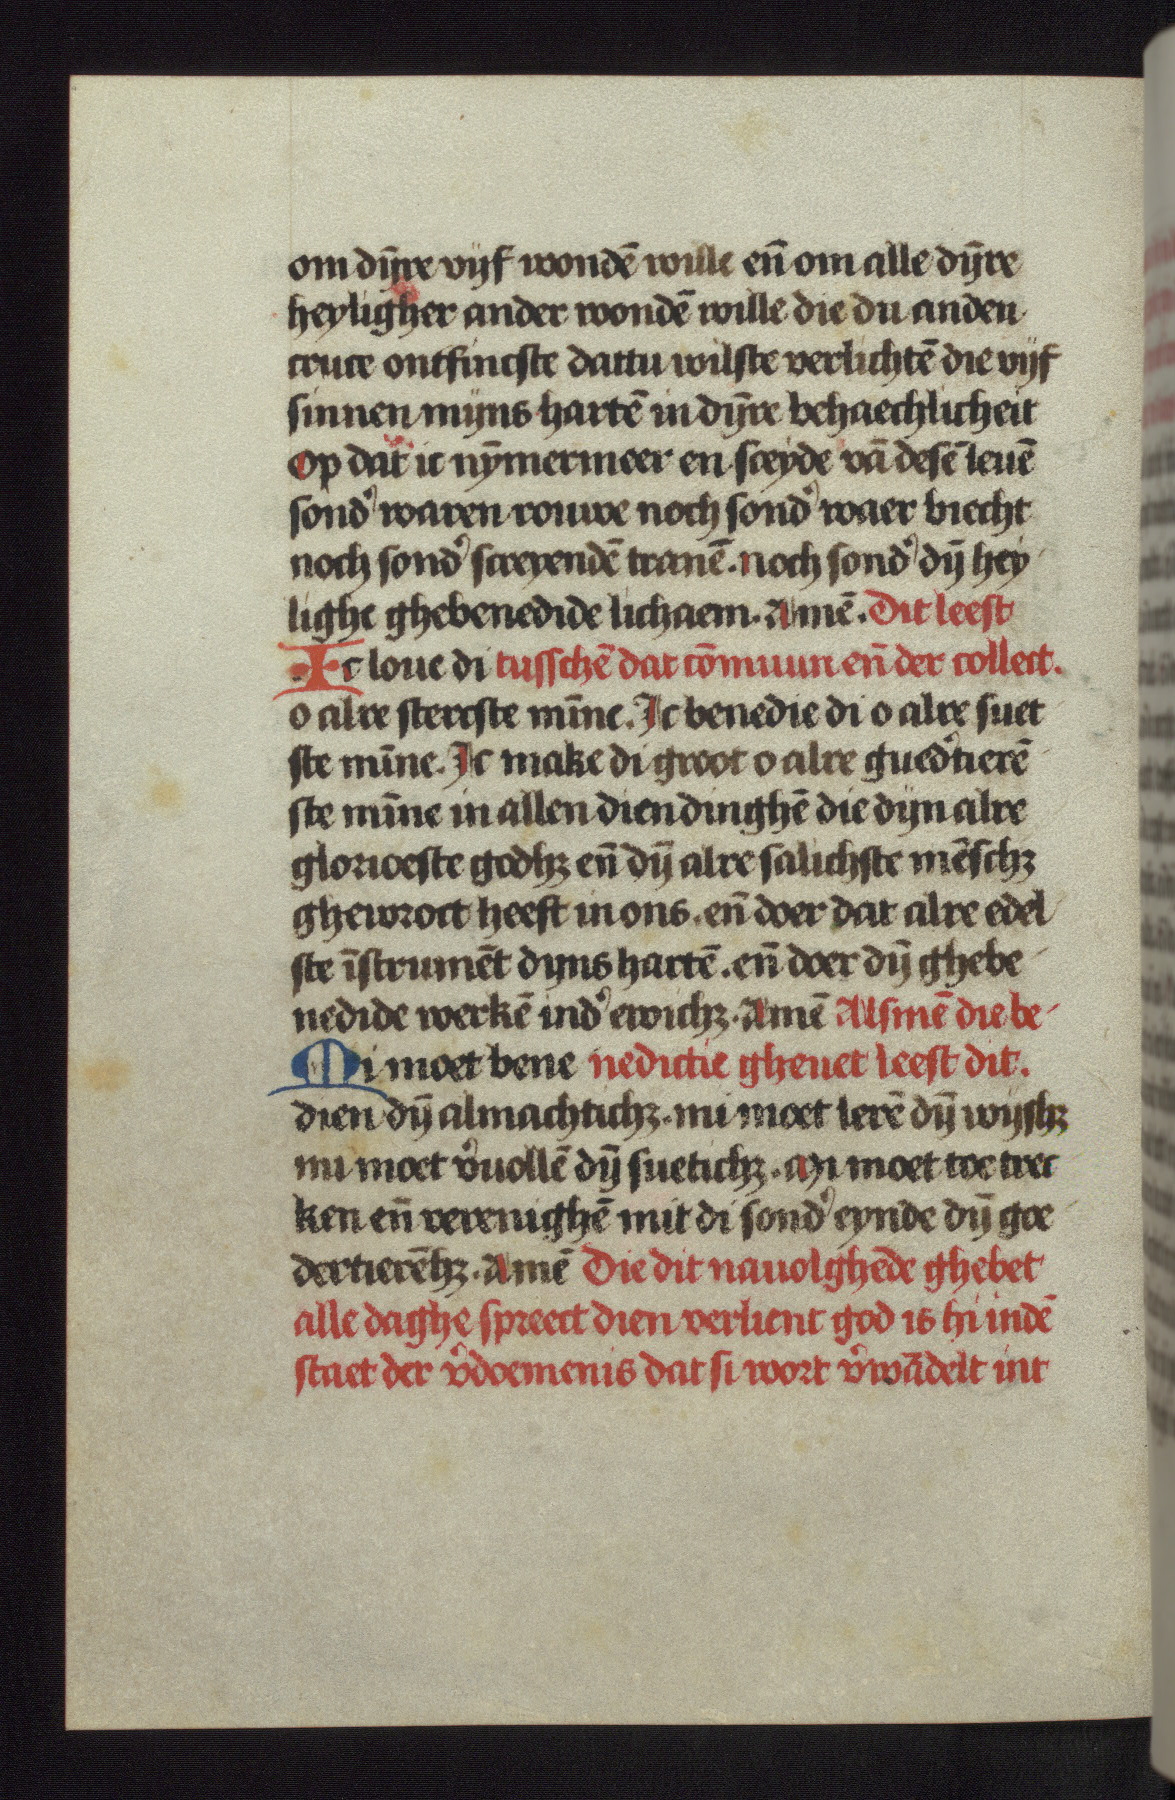 om dȳre vijf wondē wille en̄ om alle dȳre
heyligher ander wondē wille die du anden
cruce ontfincste dattu wilste verlichtē die vijf
sinnen mijns hartē in dȳre behaechlicheit
Op dat ic nȳmermeer en sceyde vā desē leuē
sond᾽ waren rouwe noch sond᾽ waer biecht
noch sond᾽ screyendē tranē. noch sond᾽ dȳ hey
lighe ghebenedide lichaem. Amē. Dit leest
Ic loue di tusschē dat cōmuun en̄ der collect.
o alre stercste mīne. Ic benedie di o alre suet
ste mīne. Ic make di groot o alre gued᾽tierē
ste mīne in allen dien dinghē die dijn alre
glorioeste godhꝫ en̄ dȳ alre salichste mēschꝫ
ghewroct heeft in ons. en̄ doer dat alre edel
ste īstrumēt dyns hartē. en̄ doer dȳ ghebe
nedide werkē ind᾽ ewichꝫ. Amē Alsmē die be
Mi moet bene nedictie gheuet leest dit.
dien dȳ almachtichꝫ. mi moet lerē dȳ wijshꝫ
mi moet v᾽uollē dȳ suetichꝫ. Mi moet toe trec
ken en̄ verenighē mit di sond᾽ eynde dȳ goe
dertierēhꝫ. Amē Die dit nauolghēde ghebet
alle daghe spreect dien verlient god is hi indē
staet der v᾽doemenis dat si wort v᾽wādelt int